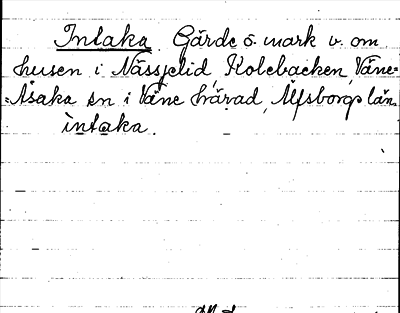 Intaka. Gärde o. mark v. om
husen i Nässjelid, Kolebacken, Väne-
-Åsaka sn i Väne härad, Älfsborgs län.
intaka.